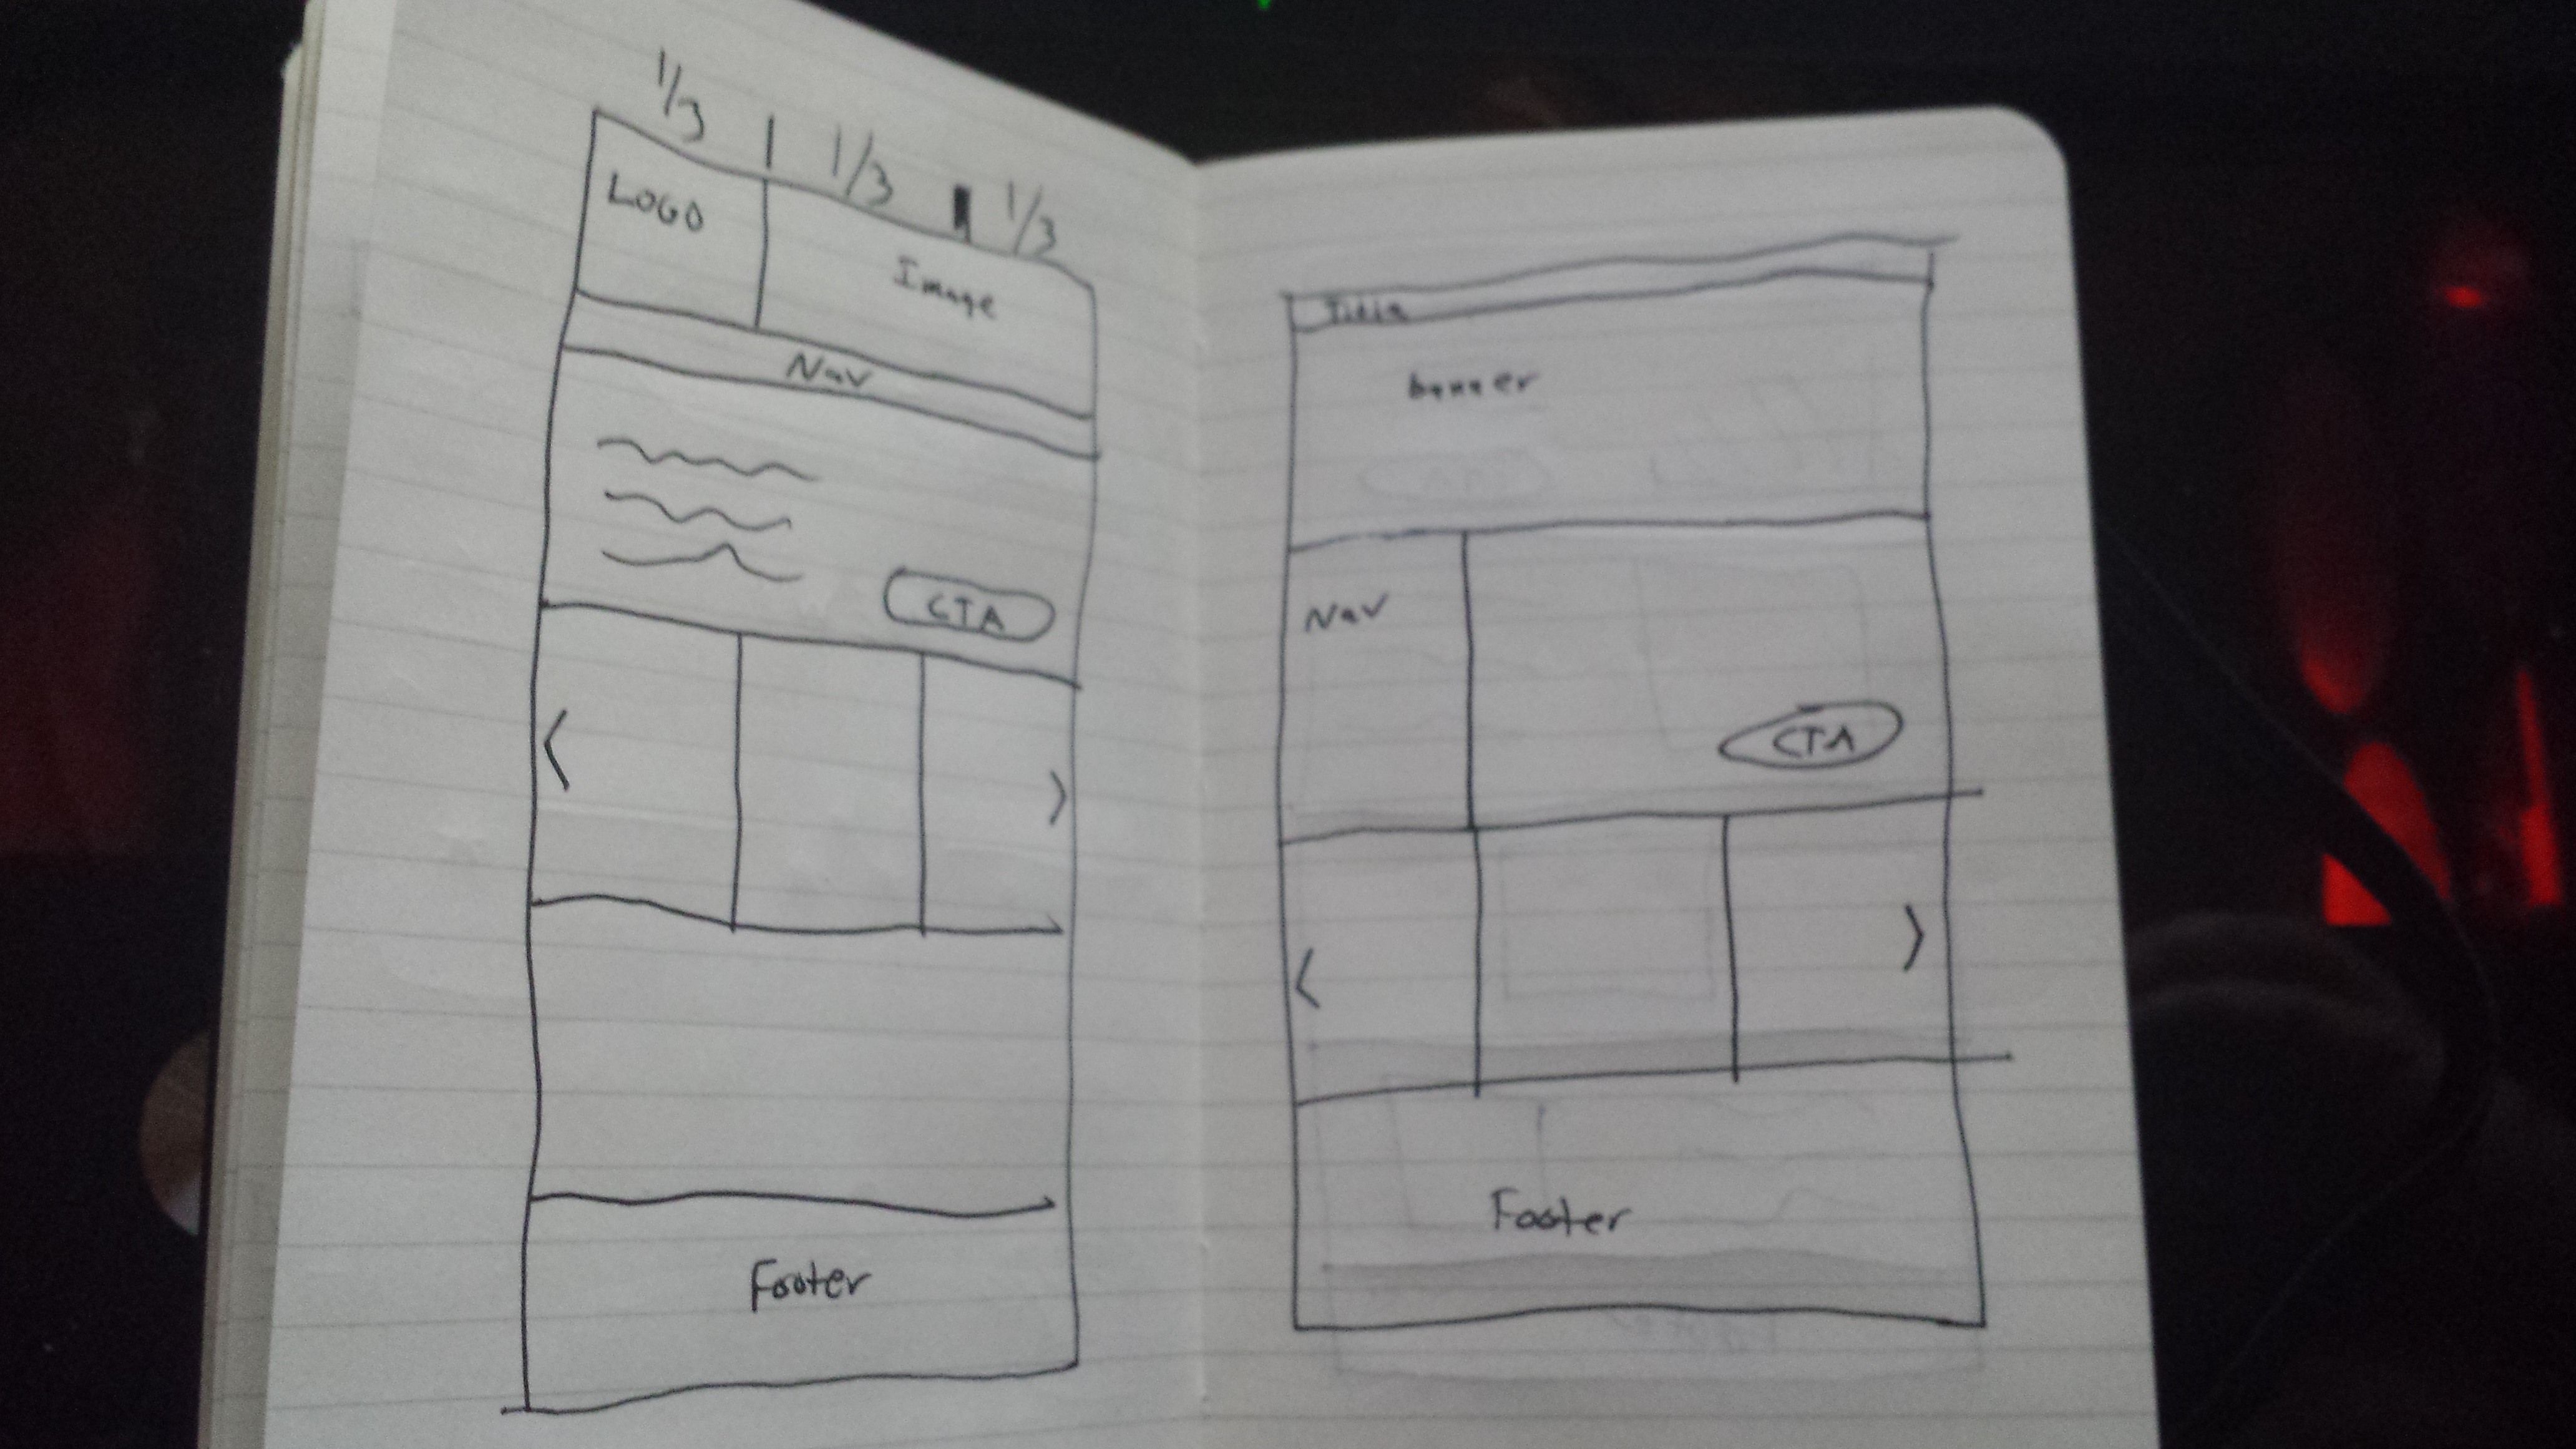 1/3 | 1/3 | 1/3
LOGO
Image
Nav
CTA
<
>
Footer
banner
Nav
CTA
<
>
Footer